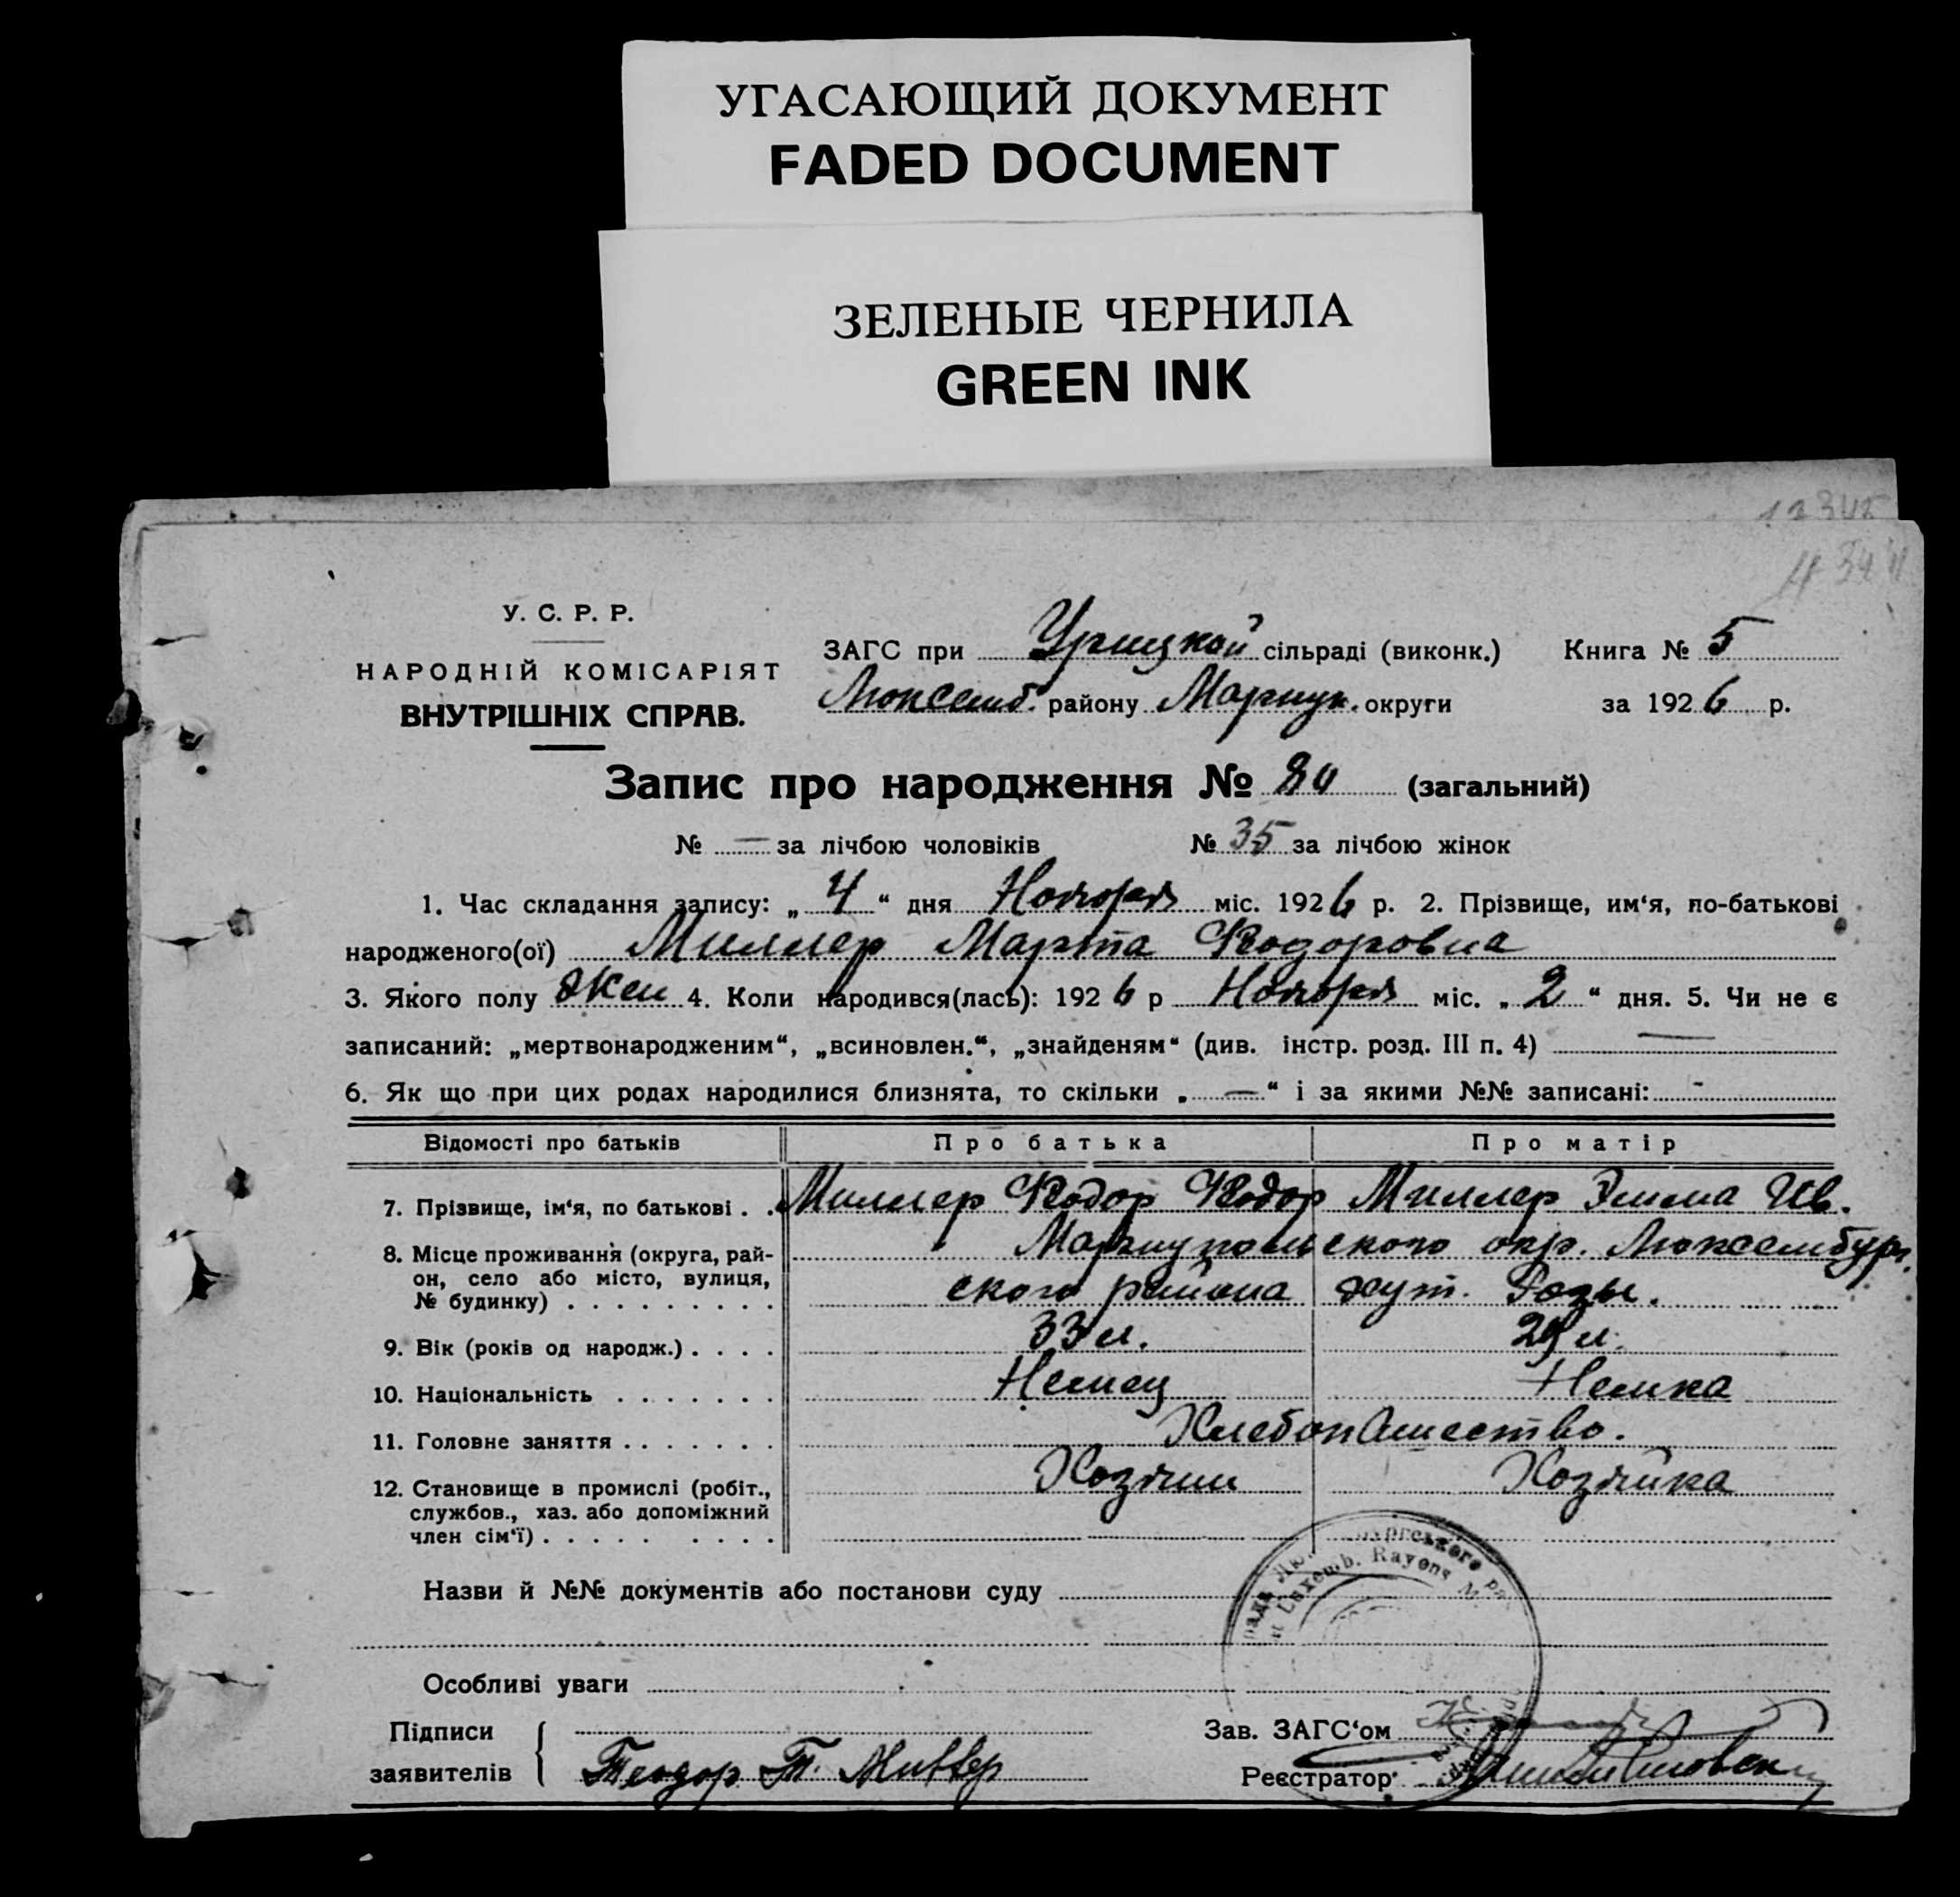 УГАСАЮЩИЙ ДОКУМЕНТ
FADED DOCUMENT
ЗЕЛЕНЫЕ ЧЕРНИЛА
GREEN INK
У. С. Р. Р.
НАРОДНІЙ КОМІСАРІЯТ
ВНУТРІШНІХ СПРАВ.
ЗАГС при Урицкой сільраді (виконк.) Книга № 5
Люксемб. району Мариуп. округи за 1926 р.
Запис про народження № 80 (загальний)
№ — за лічбою чоловіків № 35 за лічбою жінок
1. Час складання запису: „ 4 “ дня Ноября міс. 1926 р. 2. Прізвище, им‘я, по-батькові
народженого(ої) Миллер Марта Федоровна
3. Якого полу Жен 4. Коли народився(лась): 1926 р Ноября міс. „ 2 “ дня. 5. Чи не є
записаний: „мертвонародженим“, „всиновлен.“, „знайденям“ (див. інстр. розд. III п. 4) —
6. Як що при цих родах народилися близнята, то скільки „ — “ і за якими №№ записані: -
Відомості про батьків Про батька Про матір
7. Прізвище, ім‘я, по батькові . . Миллер Федор Федор Миллер Эмма Ив.
8. Місце проживання (округа, рай- Мариупольского окр. Люксембург.
он, село або місто, вулиця, ского района хут. Розы.
№ будинку) . . . . . . . . .
9. Вік (років од народж.) . . . . 33 л. 29 л.
10. Національність . . . . . . . Немец Немка
11. Головне заняття . . . . . . . Хлебопашество.
12. Становище в промислі (робіт., Хозяин Хозяйка
службов., хаз. або допоміжний
член сім‘ї) . . . . . . . . .
Назви й №№ документів або постанови суду
Luxemb. Rayons
Особливі уваги
Підписи
заявителів Теодор Т. Миллер
Зав. ЗАГС‘ом
Реєстратор